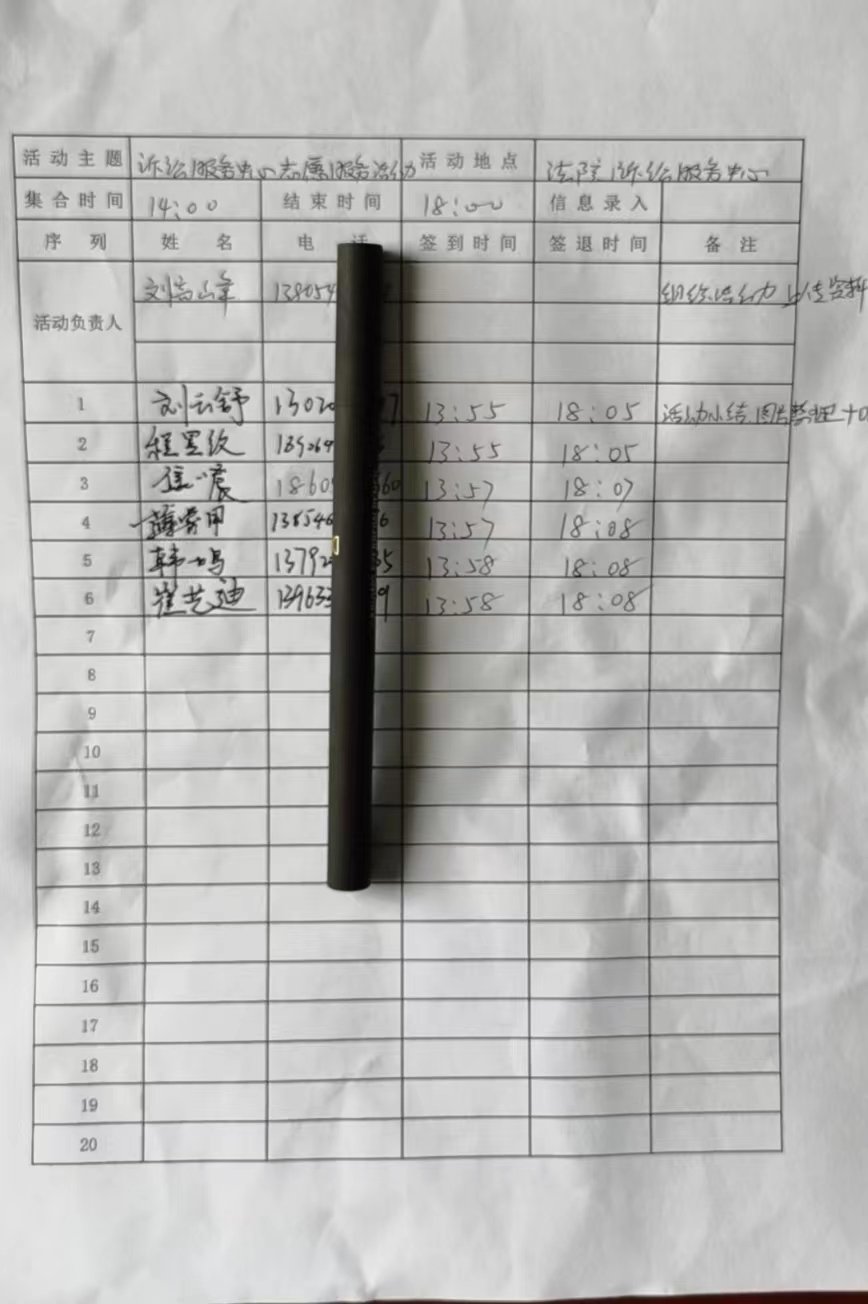 活动主题 诉讼服务中心志愿服务活动 活动地点 法院诉讼服务中心
集合时间 14:00 结束时间 18:00 信息录入
序列 姓名 电 签到时间 签退时间 备注
刘高峰 138054 组织活动 上传资料
活动负责人
1 刘云舒 13020 7 13:55 18:05 活动小结 图片整理
2 139269 13:55 18:05
3 1860 60 13:57 18:07
4 138546 6 13:57 18:08
5 韩一鸣 13792 35 13:58 18:08
6 崔艺迪 139633 9 13:58 18:08
7
8
9
10
11
12
13
14
15
16
17
18
19
20